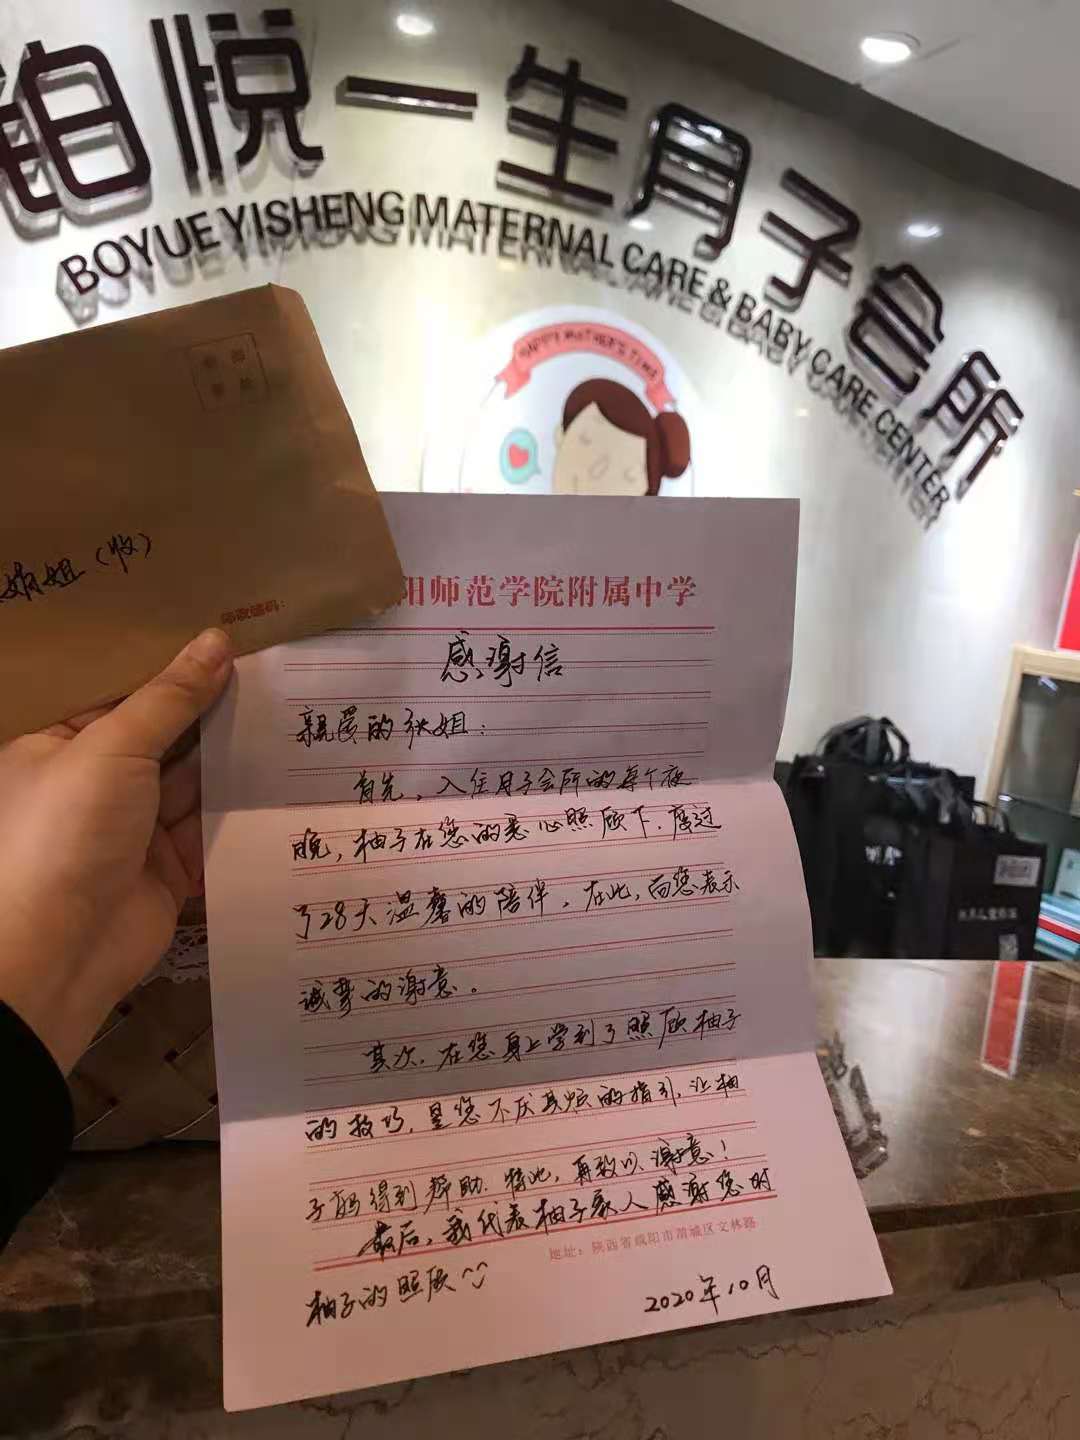 铂悦一生月子会所
BOYUE YISHENG MATERNAL CARE & BABY CARE CENTER
HAPPY MOTHER'S TIME
姐（收）
邮政编码：
阳师范学院附属中学
感谢信
亲爱的张姐：
首先，入住月子会所的每个夜
晚，柚子在您的悉心照顾下，度过
了28天温馨的陪伴。在此，向您表示
诚挚的谢意。
其次，在您身上学到了照顾柚子
的技巧，是您不厌其烦的指引，让柚
子妈得到帮助。特此，再致以谢意！
最后，我代表柚子家人感谢您对
地址：陕西省咸阳市渭城区文林路
柚子的照顾
2020年10月